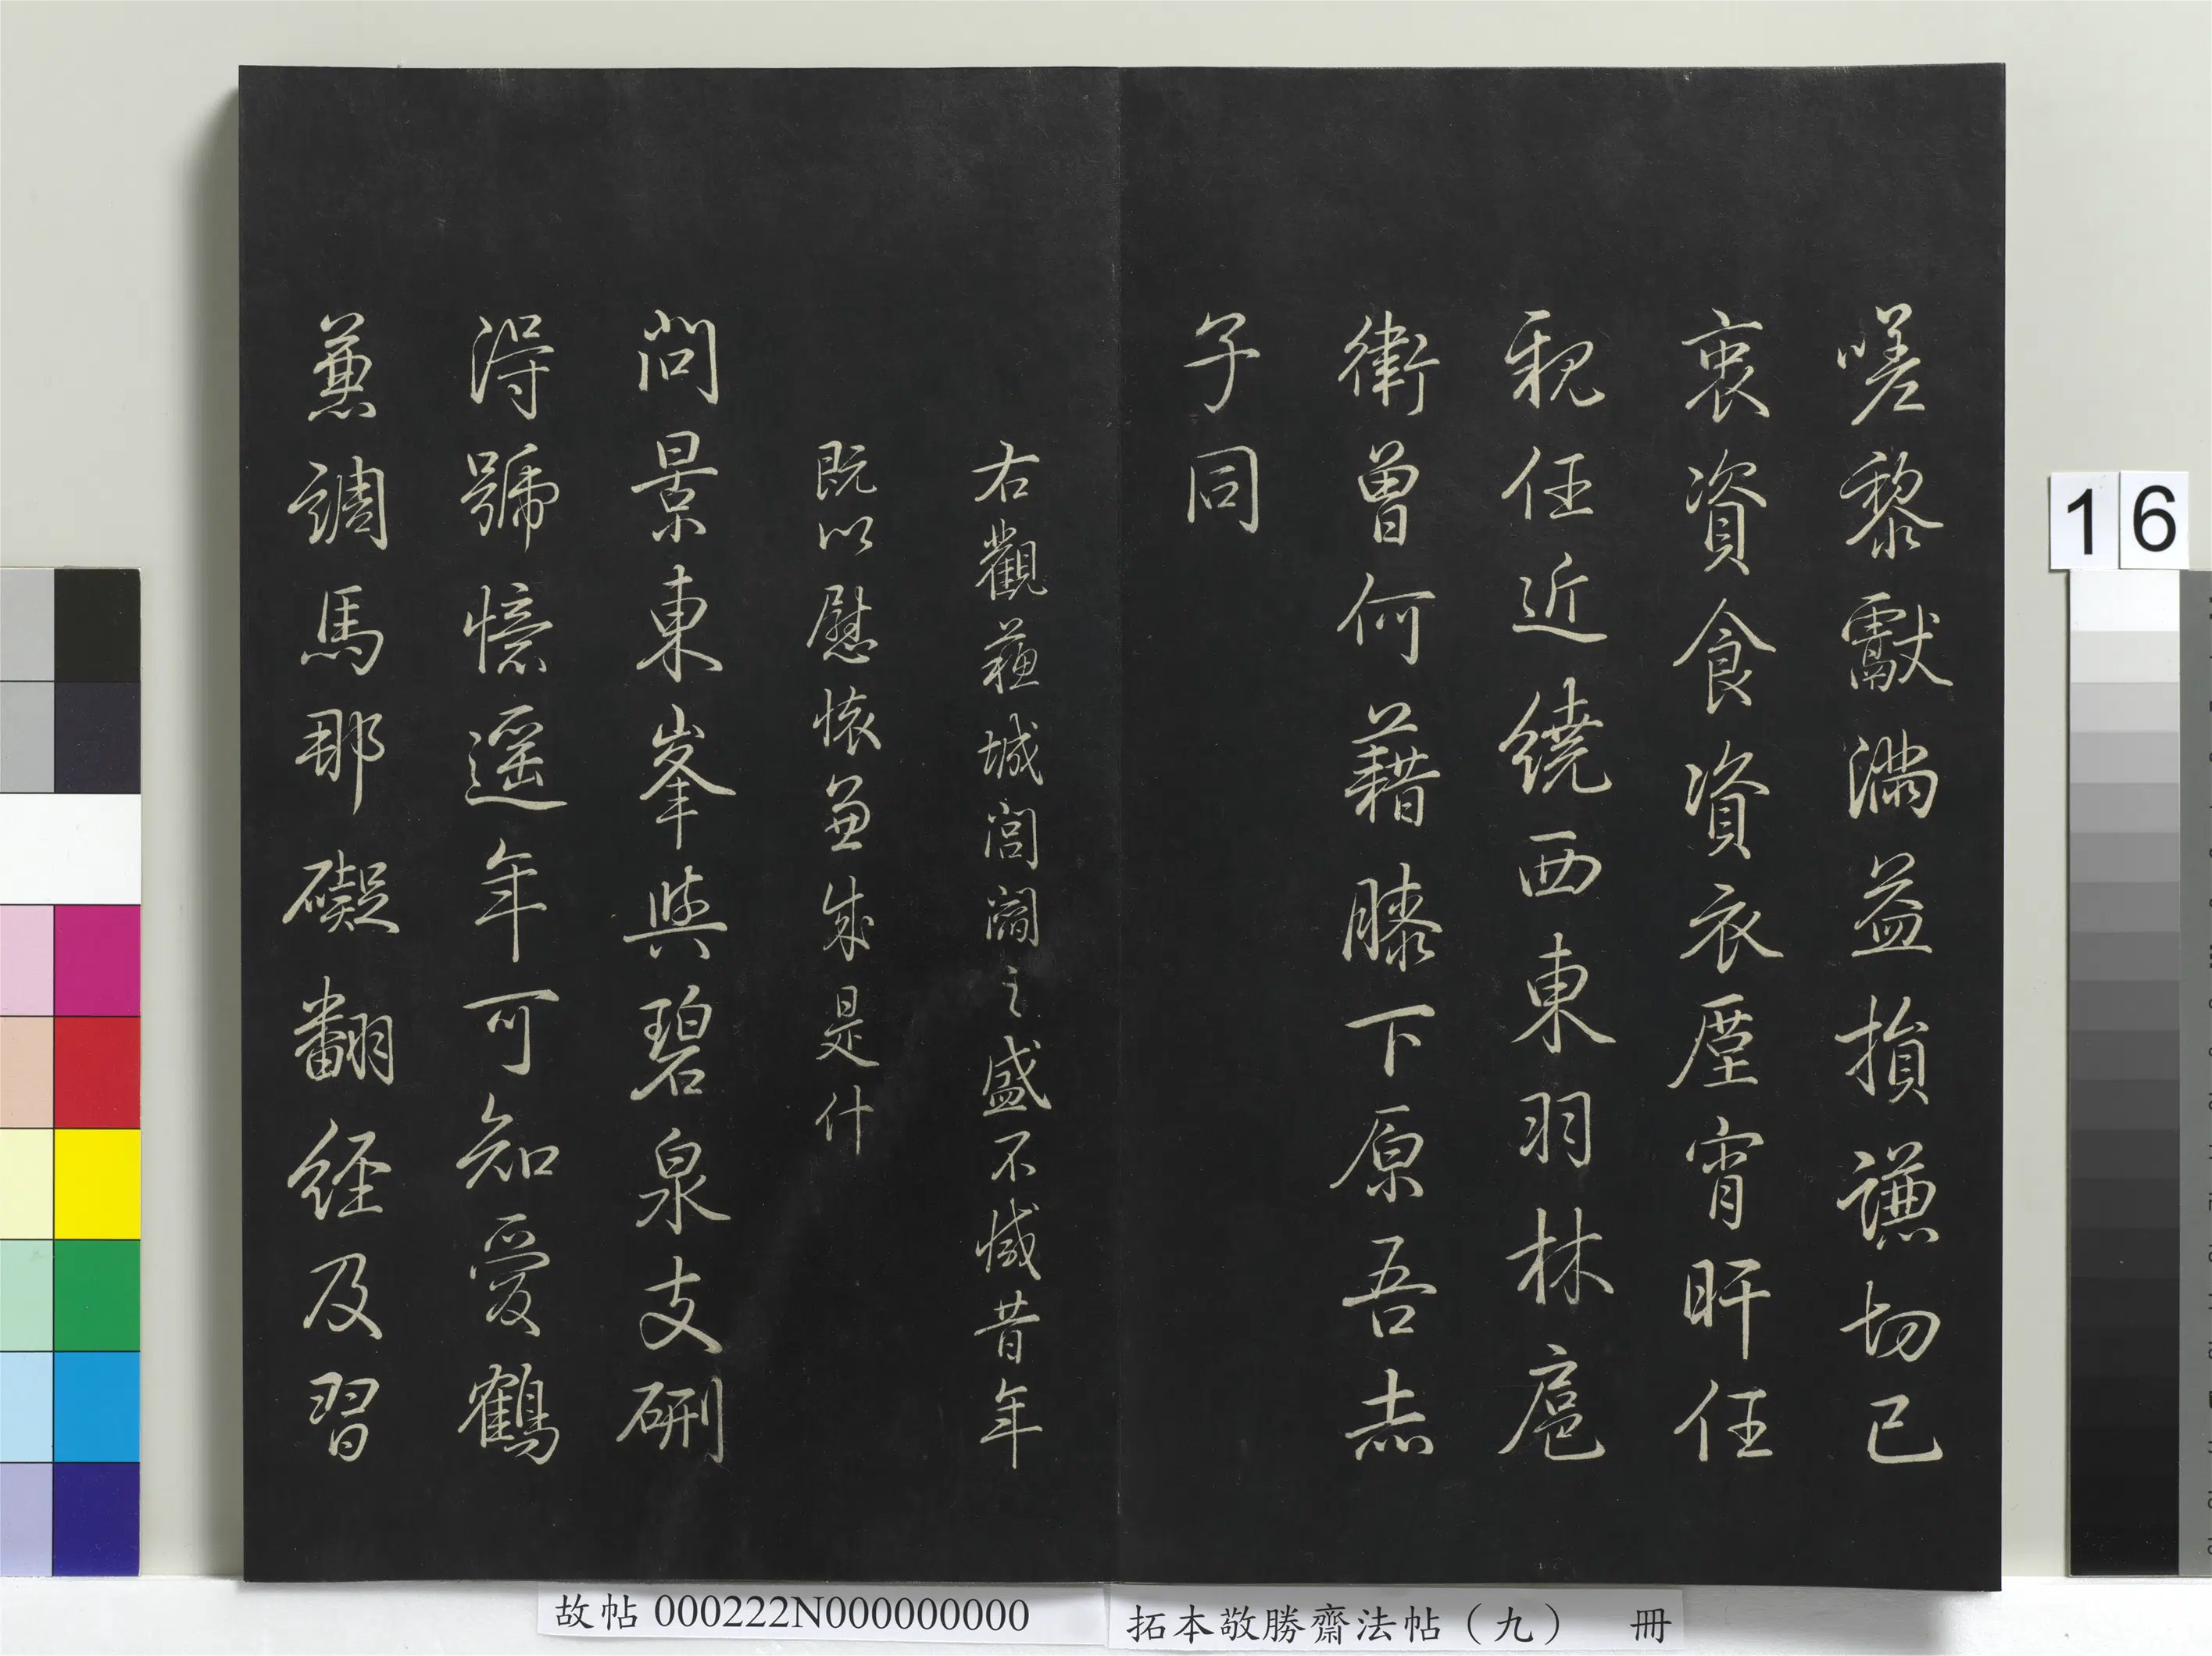 嗟黎獻滿益損謙切己
衷資食資衣廑宵旰任
親任近繞西東羽林扈
衛曽何藉膝下原吾赤
子同
右觀蘓城閭閻之盛不慽昔年
既以慰懷並成是什
問景東峯與碧泉支硎
淂號憶遥年可知愛鶴
兼調馬那礙翻經及習
16
故帖 000222N000000000
拓本敬勝齋法帖（九） 冊